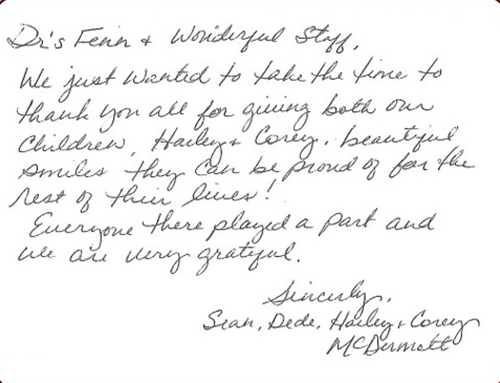 Dr's Fenn + Wonderful Staff,
We just wanted to take the time to
thank you all for giving both our
Children, Hailey + Corey, beautiful
smiles they can be proud of for the
rest of their lives!
Everyone there played a part and
we are very grateful.
Sincerly,
Sean, Dede, Hailey + Corey
McDermott